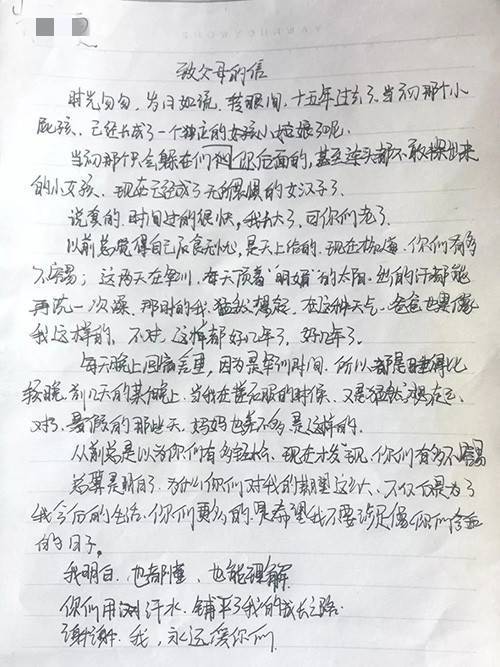 致父母的信
时光匆匆,岁月如流,转眼间,十五年过去了。当初那个小
屁孩,已经长成了一个独立的女孩小姑娘了呢。
当初那个只会躲在你们后面的,甚至连头都不敢探出来
的小女孩、现在已经成了无所畏惧的女汉子了.
说真的.时间过的很快,我长大了,可你们老了.
以前总觉得自己衣食无忧,是天上给的.现在才懂.你们有多
不容易;这两天在军训,每天顶着"明媚"的太阳.出的汗都能
再洗一次澡,那时的我,猛然想起,在这种天气.爸爸也是像
我这样的,不对,这样都好几年了,好几年了。
每天晚上回宿舍里,因为是军训时间,所以都是睡得比
较晚.前几天的某晚上,当我在洗衣服的时候、又是猛然想起,
对了.暑假的那些天,妈妈也差不多是这样的.
从前总是以为你们有多轻松、现在才发现,你们有多不容易
总算是明白了.为什么你们对我的期望这么大、不仅仅是为了
我今后的生活.你们更多的.是希望我不要涉足像你们这些
的日子。
我明白.也都懂、也能理解
你们用汗水.铺平了我的成长之路.
谢谢.我,永远爱你们.